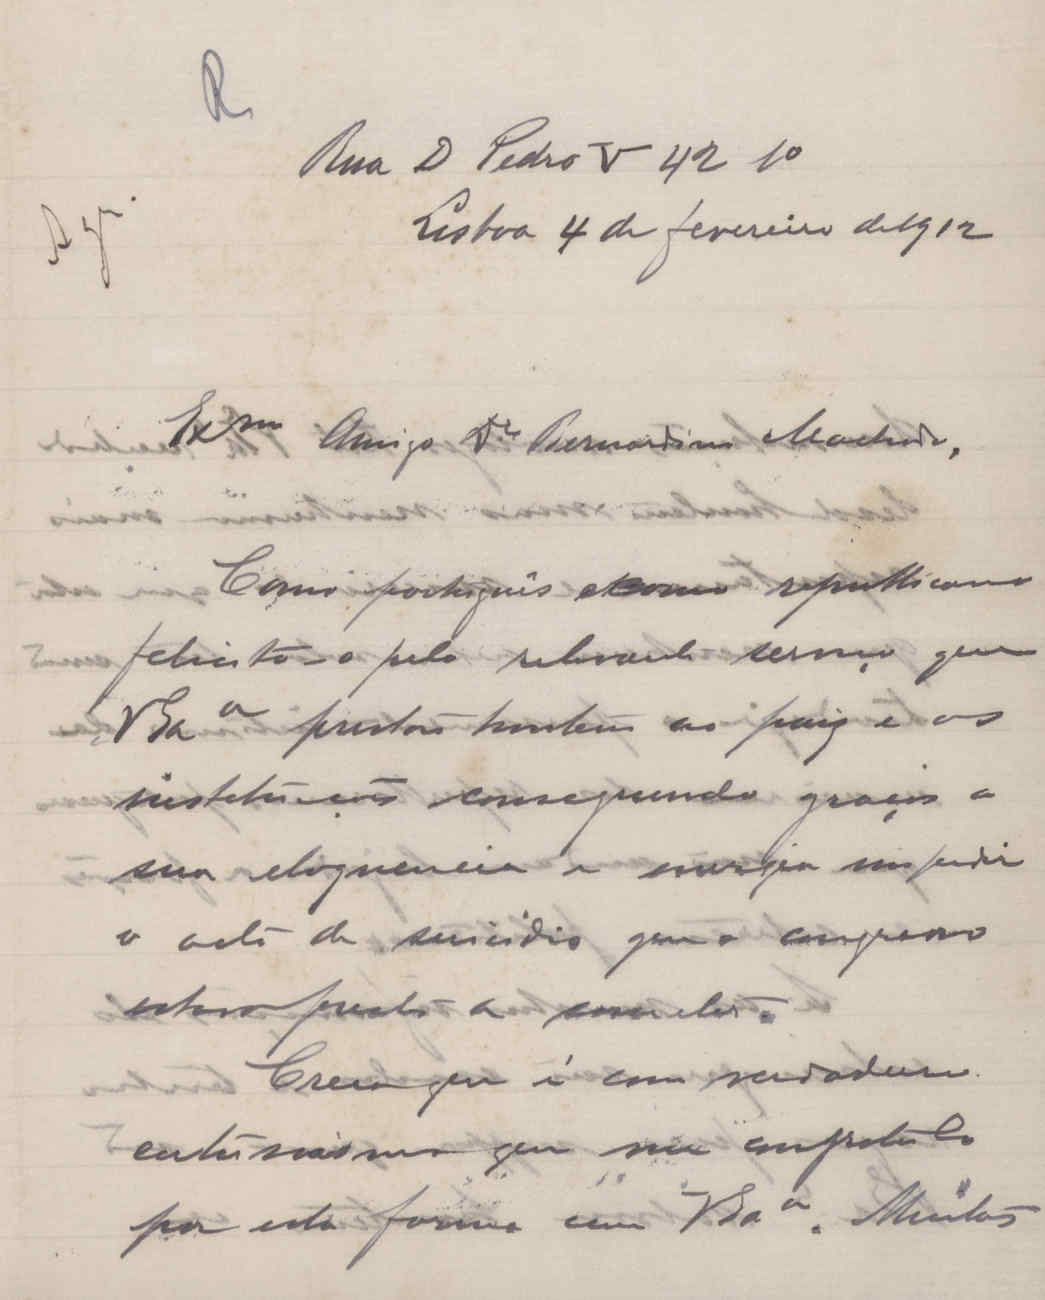 R
Rua D Pedro V 42 1º
Lisboa 4 de fevereiro de 1912
Exmo Amigo Dr Bernardino Machado,
Como português e como republicano
felicito-o pelo relevante serviço que
V Exa prestou hontem ao paiz e as
instituições conseguindo graças a
sua eloquencia e energia impedir
o acto de suicidio que o congresso
estava prestes a cometer.
Creia que é com verdadeiro
enthusiasmo que me congratulo
por esta forma com V Exa. Muitos